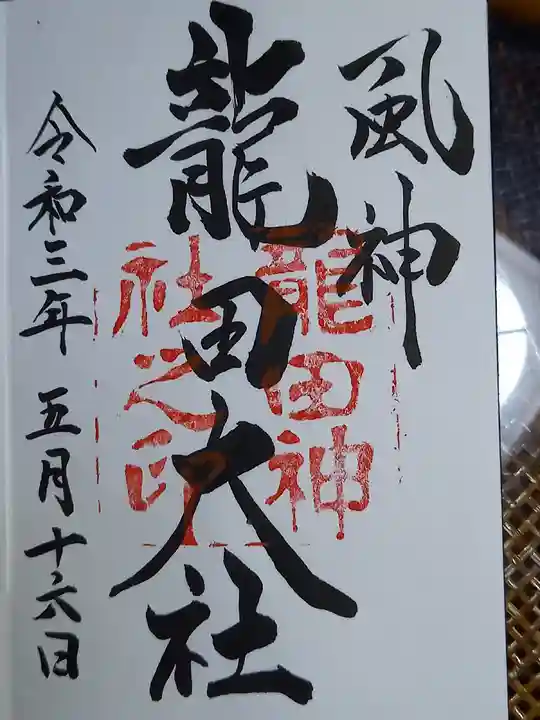 風神
龍田大社
龍田神
社之印
令和三年 五月十六日